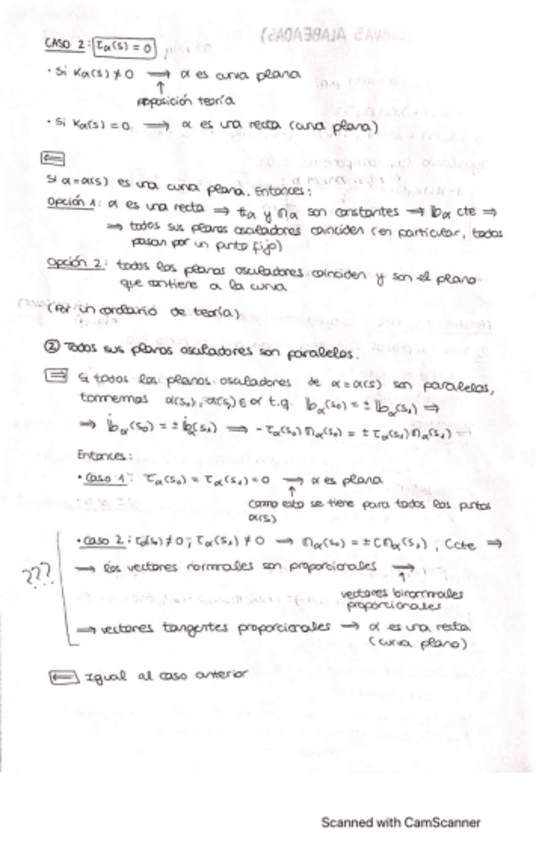 CASO 2: τα(s) = 0
· Si κα(s) ≠ 0 → α es curva plana
↑
proposición teoría
· Si κα(s) = 0 ⇒ α es una recta (curva plana)
⇐
Si α=α(s) es una curva plana. Entonces:
Opción 1: α es una recta ⇒ tα y nα son constantes → bα cte ⇒
⇒ todos sus planos osculadores coinciden (en particular, todos
pasan por un punto fijo)
Opción 2: todos los planos osculadores coinciden y son el plano
que contiene a la curva
(Por un corolario de teoría)
② Todos sus planos osculadores son paralelos.
⇒ Si todos los planos osculadores de α=α(s) son paralelos,
tomemos α(s₀), α(s₁) ∈ α t.q. bα(s₀) = ± bα(s₁) ⇒
⇒ ḃα(s₀) = ± ḃα(s₁) ⇒ -τα(s₀) nα(s₀) = ± τα(s₁) nα(s₁)
Entonces:
· Caso 1: τα(s₀) = τα(s₁) = 0 → α es plana
↑
como esto se tiene para todos los puntos
α(s)
· Caso 2: τα(s₀) ≠ 0, τα(s₁) ≠ 0 → nα(s₀) = ± C nα(s₁), C cte ⇒
??? → los vectores normales son proporcionales →
↑
vectores binormales
proporcionales
→ vectores tangentes proporcionales → α es una recta
(curva plana)
⇐ Igual al caso anterior
Scanned with CamScanner